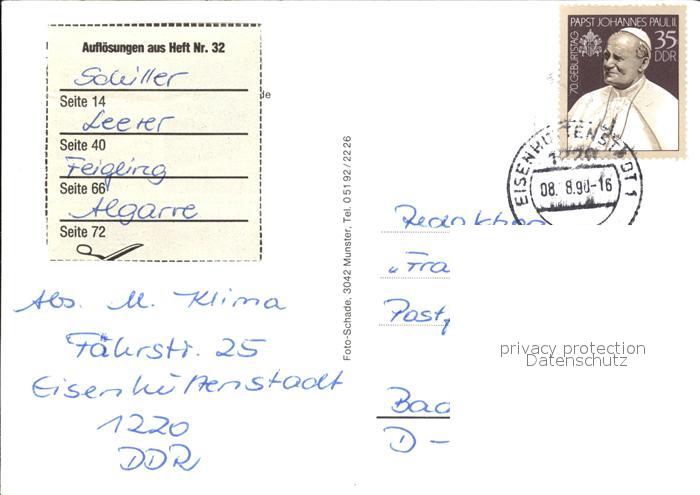 Auflösungen aus Heft Nr. 32
Schiller
Seite 14
Leerer
Seite 40
Feigling
Seite 66
Algarve
Seite 72
de
Abs. M. Klima
Fährstr. 25
Eisenhüttenstadt
1220
DDR
Foto-Schade, 3042 Munster, Tel. 05192/2226
PAPST JOHANNES PAUL II.
35
DDR
70. GEBURTSTAG
EISENHÜTTENSTADT 1
1220
08. 8.90-16
Redaktion
„Fra
Post
privacy protection
Datenschutz
Bad
D -